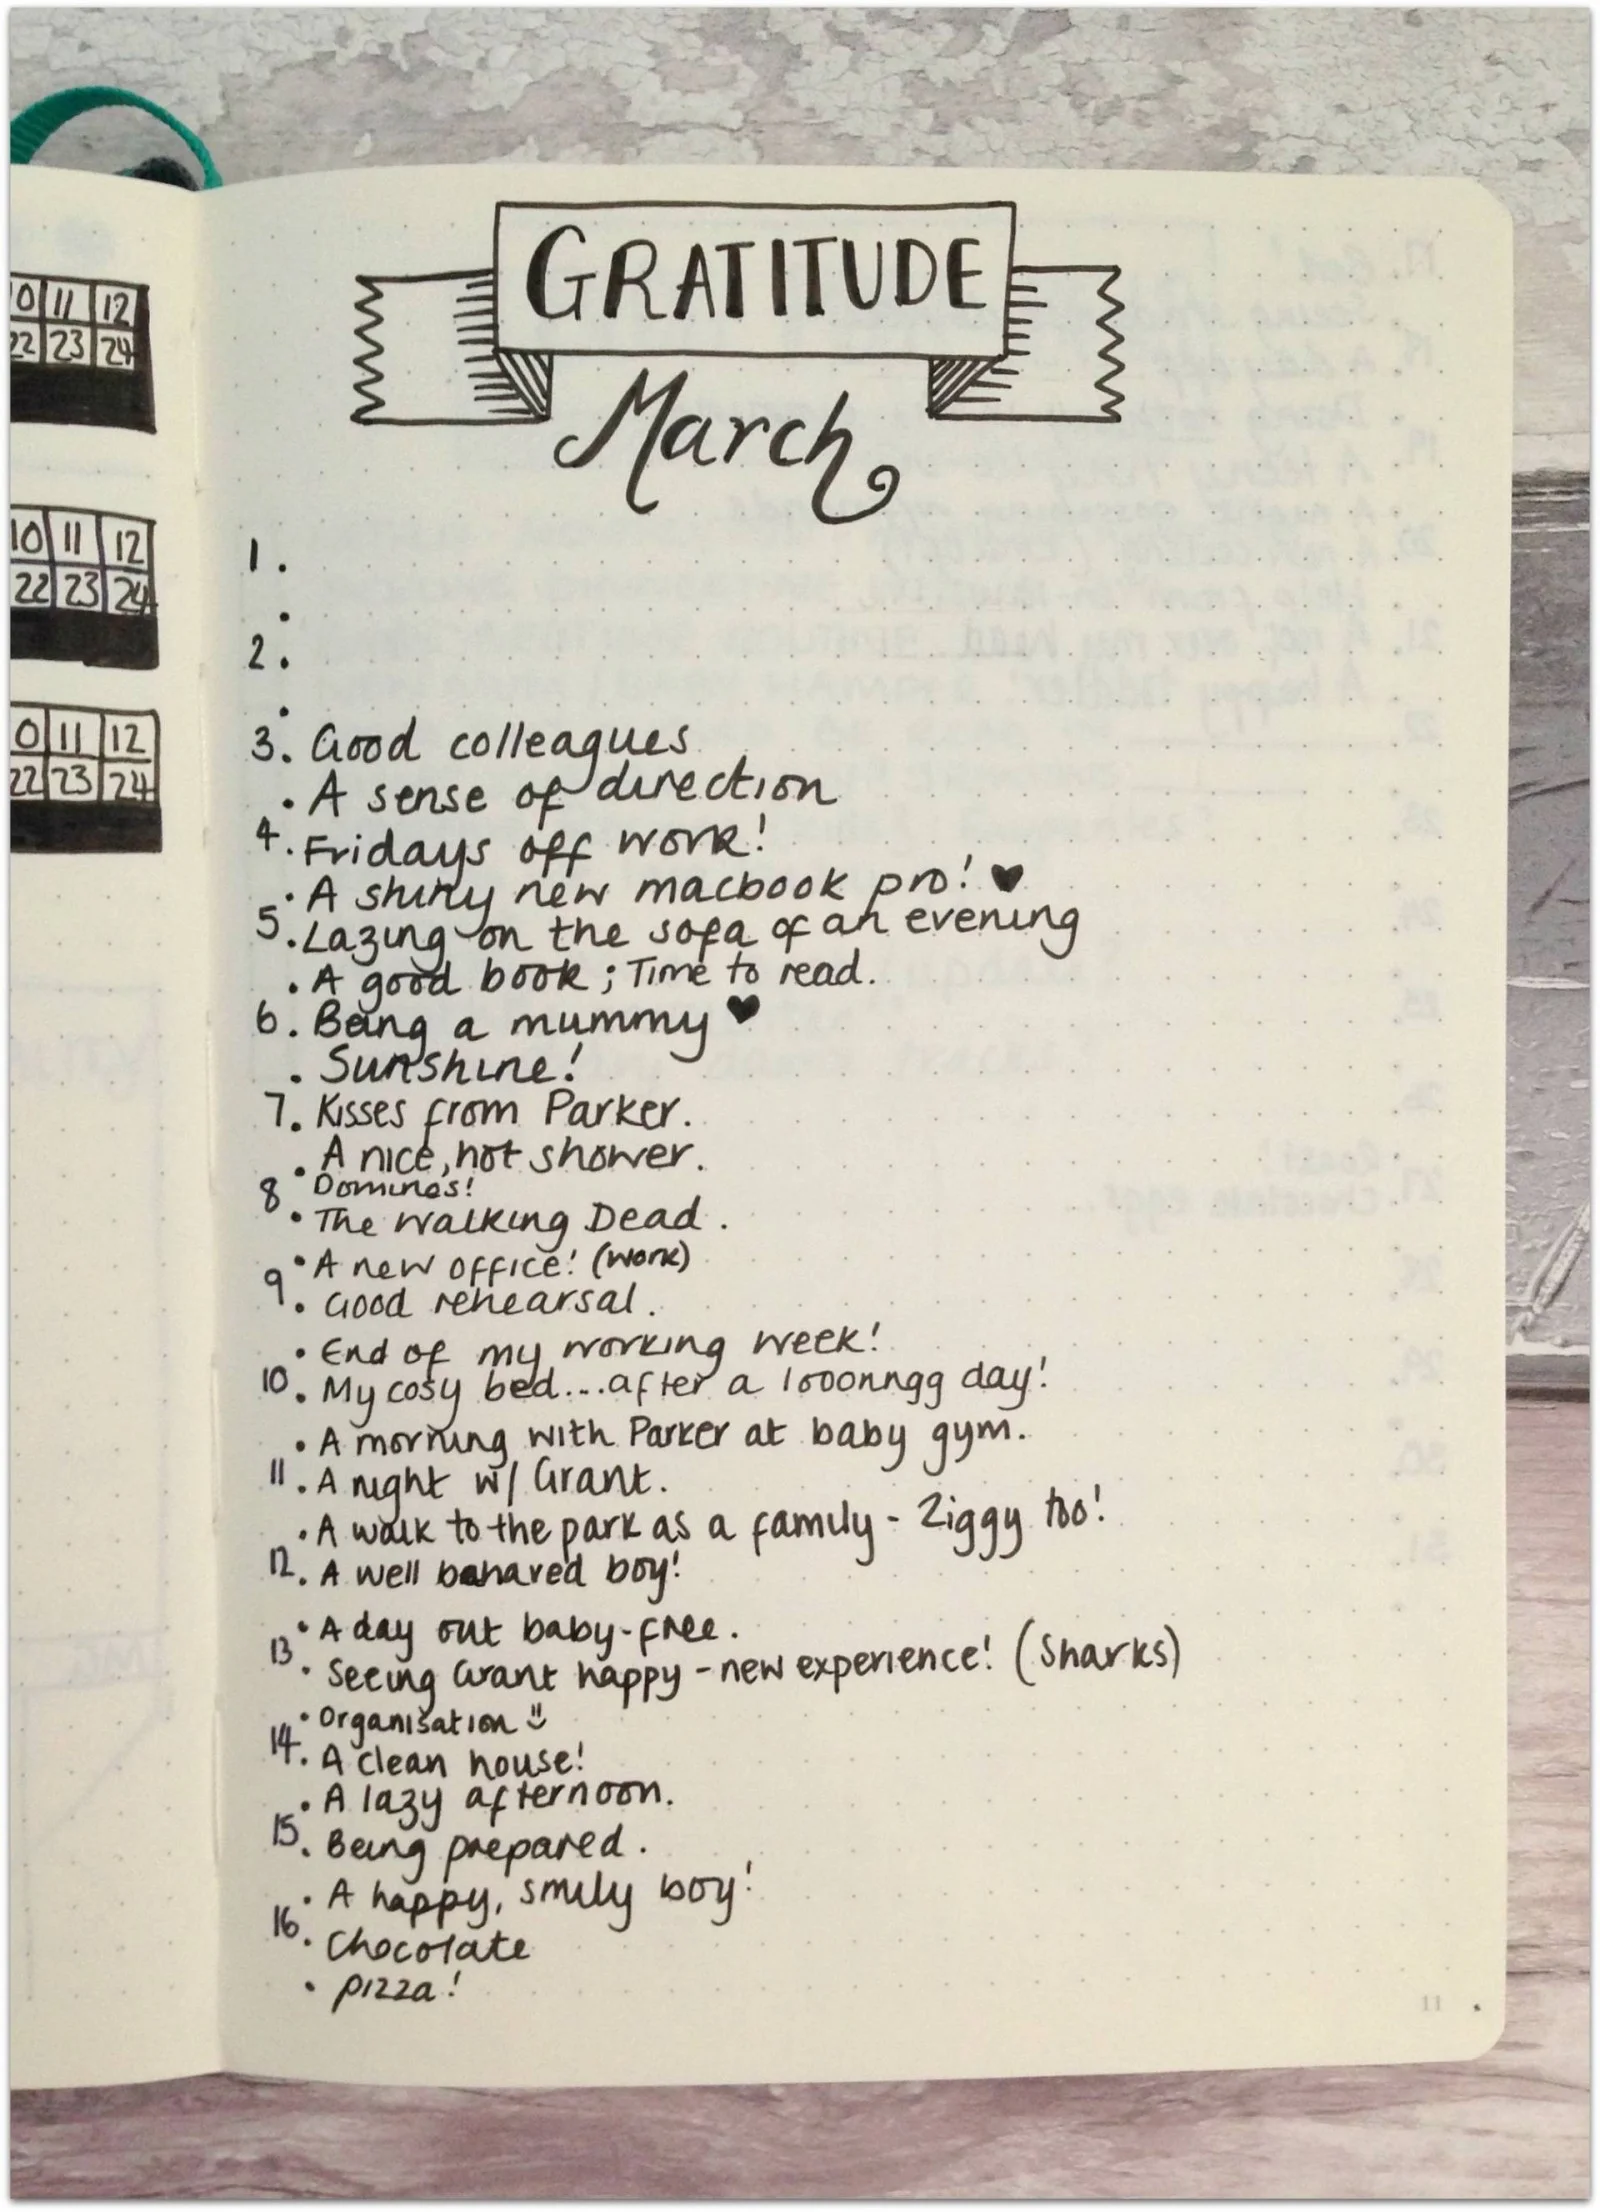 10 11 12
22 23 24
10 11 12
22 23 24
0 11 12
22 23 24
GRATITUDE
March
1.
.
2.
.
3. Good colleagues
. A sense of direction
4. Fridays off work!
. A shiny new macbook pro! ♥
5. Lazing on the sofa of an evening
. A good book; Time to read.
6. Being a mummy ♥
. Sunshine!
7. Kisses from Parker.
. A nice, hot shower.
8 Dominos!
. The Walking Dead.
. A new office! (work)
9. Good rehearsal.
. End of my working week!
10. My cosy bed...after a looonngg day!
. A morning with Parker at baby gym.
11. A night w/ Grant.
. A walk to the park as a family - Ziggy too!
12. A well behaved boy!
. A day out baby-free.
13. Seeing Grant happy - new experience! (Sharks)
. Organisation
14. A clean house!
. A lazy afternoon.
15. Being prepared.
. A happy, smily boy!
16. Chocolate
. pizza!
11